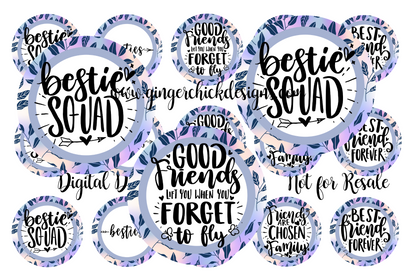 bestie
SQUAD
GOOD
Friends
LIFT YOU WHEN YOU
FORGET
to fly
BEST
FOREVER
bestie
SQUAD
bestie
SQUAD
www.gingerchickdesign
GOOD
BEST
friend
FOREVER
Family
GOOD
Friends
LIFT YOU WHEN YOU
FORGET
to fly
Digital D
Not for Resale
bestie
SQUAD
bestie
Friends
ARE
CHOSEN
Family
BEST
friend
FOREVER